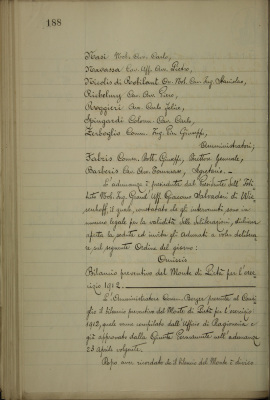 188
Nasi Nob. Avv. Carlo,
Navassa Cav. Uff. Avv. Pietro,
Nicolis di Robilant Co. Nob. Cav. Ing. Stanislao,
Avv. Piero,
Roggieri Avv. Carlo Felice,
Spingardi Colonn. Cav. Carlo,
Zerboglio Comm. Ing. Giuseppe,
Amministratori,
Fabris Comm. Dott. Direttore Generale,
Barberis Cav. Avv. Tommaso, Segretario. -
L'adunanza è presieduta dal Presidente dell'
Nob. Ing. Grand' Uff. Giacomo Salvadori di
il quale, constatato che gli intervenuti sono in
numero legale per la validità delle deliberazioni, dichiara
aperta la seduta ed invita gli Adunati a voler delibera-
re sul seguente Ordine del giorno:
Omissis
Bilancio preventivo del Monte di Pietà per l'eser-
cizio 1912.
L'Amministratore Comm. presenta al Consi-
glio il bilancio preventivo del Monte di Pietà per l'esercizio
1912, quale venne compilato dall'Ufficio di Ragioneria e
già approvato dalla Giunta nell'adunanza
23 Aprile volgente.
Dopo aver ricordato che il bilancio del Monte è diviso